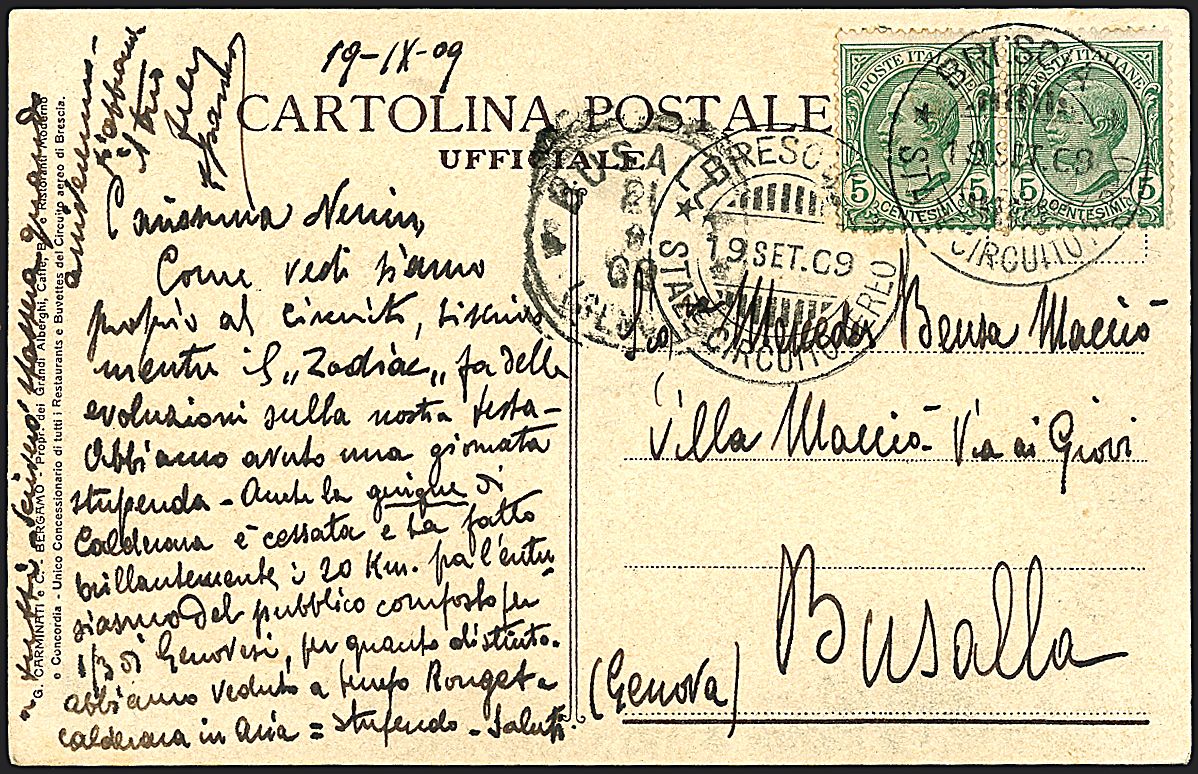 19-IX-09
CARTOLINA POSTALE
UFFICIALE
POSTE ITALIANE
5 CENTESIMI 5
POSTE ITALIANE
5 CENTESIMI 5
BRESCIA
19 SET 09
CIRCUITO AEREO
BRESCIA
19.SET.09
CIRCUITO AEREO
BUSALLA
21
9
09
Carissima
Come vedi siamo
proprio al circuito,
mentre il „Zodiac„ fa delle
evoluzioni sulla nostra testa -
Abbiamo avuto una giornata
stupenda - Anche la guigne di
Calderara è cessata e ha fatto
brillantemente i 20 Km. fra l'entu
siasmo del pubblico composto per
1/3 di Genovesi, per quanto distinto.
abbiamo veduto a tempo Rouget e
Calderara in Aria = stupendo - Saluti
a tutti
abbracci
Mercedes Bensa Macciò
Villa Macciò - Via ai Giovi
Busalla
(Genova)
G. CARMINATI e C. - BERGAMO - Propr. dei Grandi Alberghi, Caffè, e Ristoranti Moderno
e Concordia - Unico Concessionario di tutti i Restaurants e Buvettes del Circuito aereo di Brescia.